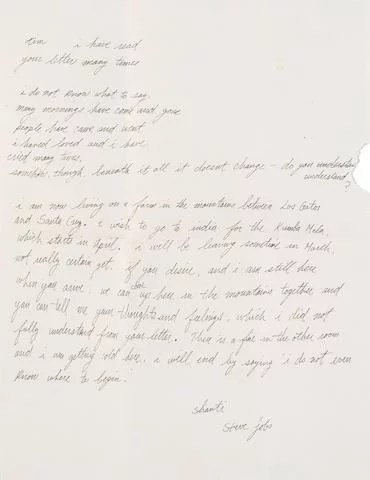 tim i have read
your letter many times
i do not know what to say.
many mornings have come and gone
people have came and went
i haved loved and i have
cried many times.
somehow, though, beneath it all it doesnt change - do you understand
understand?
i am now living on a farm in the mountains between Los Gatos
and Santa Cruz. i wish to go to india for the Kumba Mela,
which starts in april. i will be leaving sometime in March,
not really certain yet. if you desire, and i am still here
when you arive, we can be
up here in the mountains together and
you can tell me your thoughts and feelings, which i did not
fully understand from your letter. There is a fire in the other room
and i am getting cold here. i will end by saying i do not even
know where to begin.
shanti
steve jobs